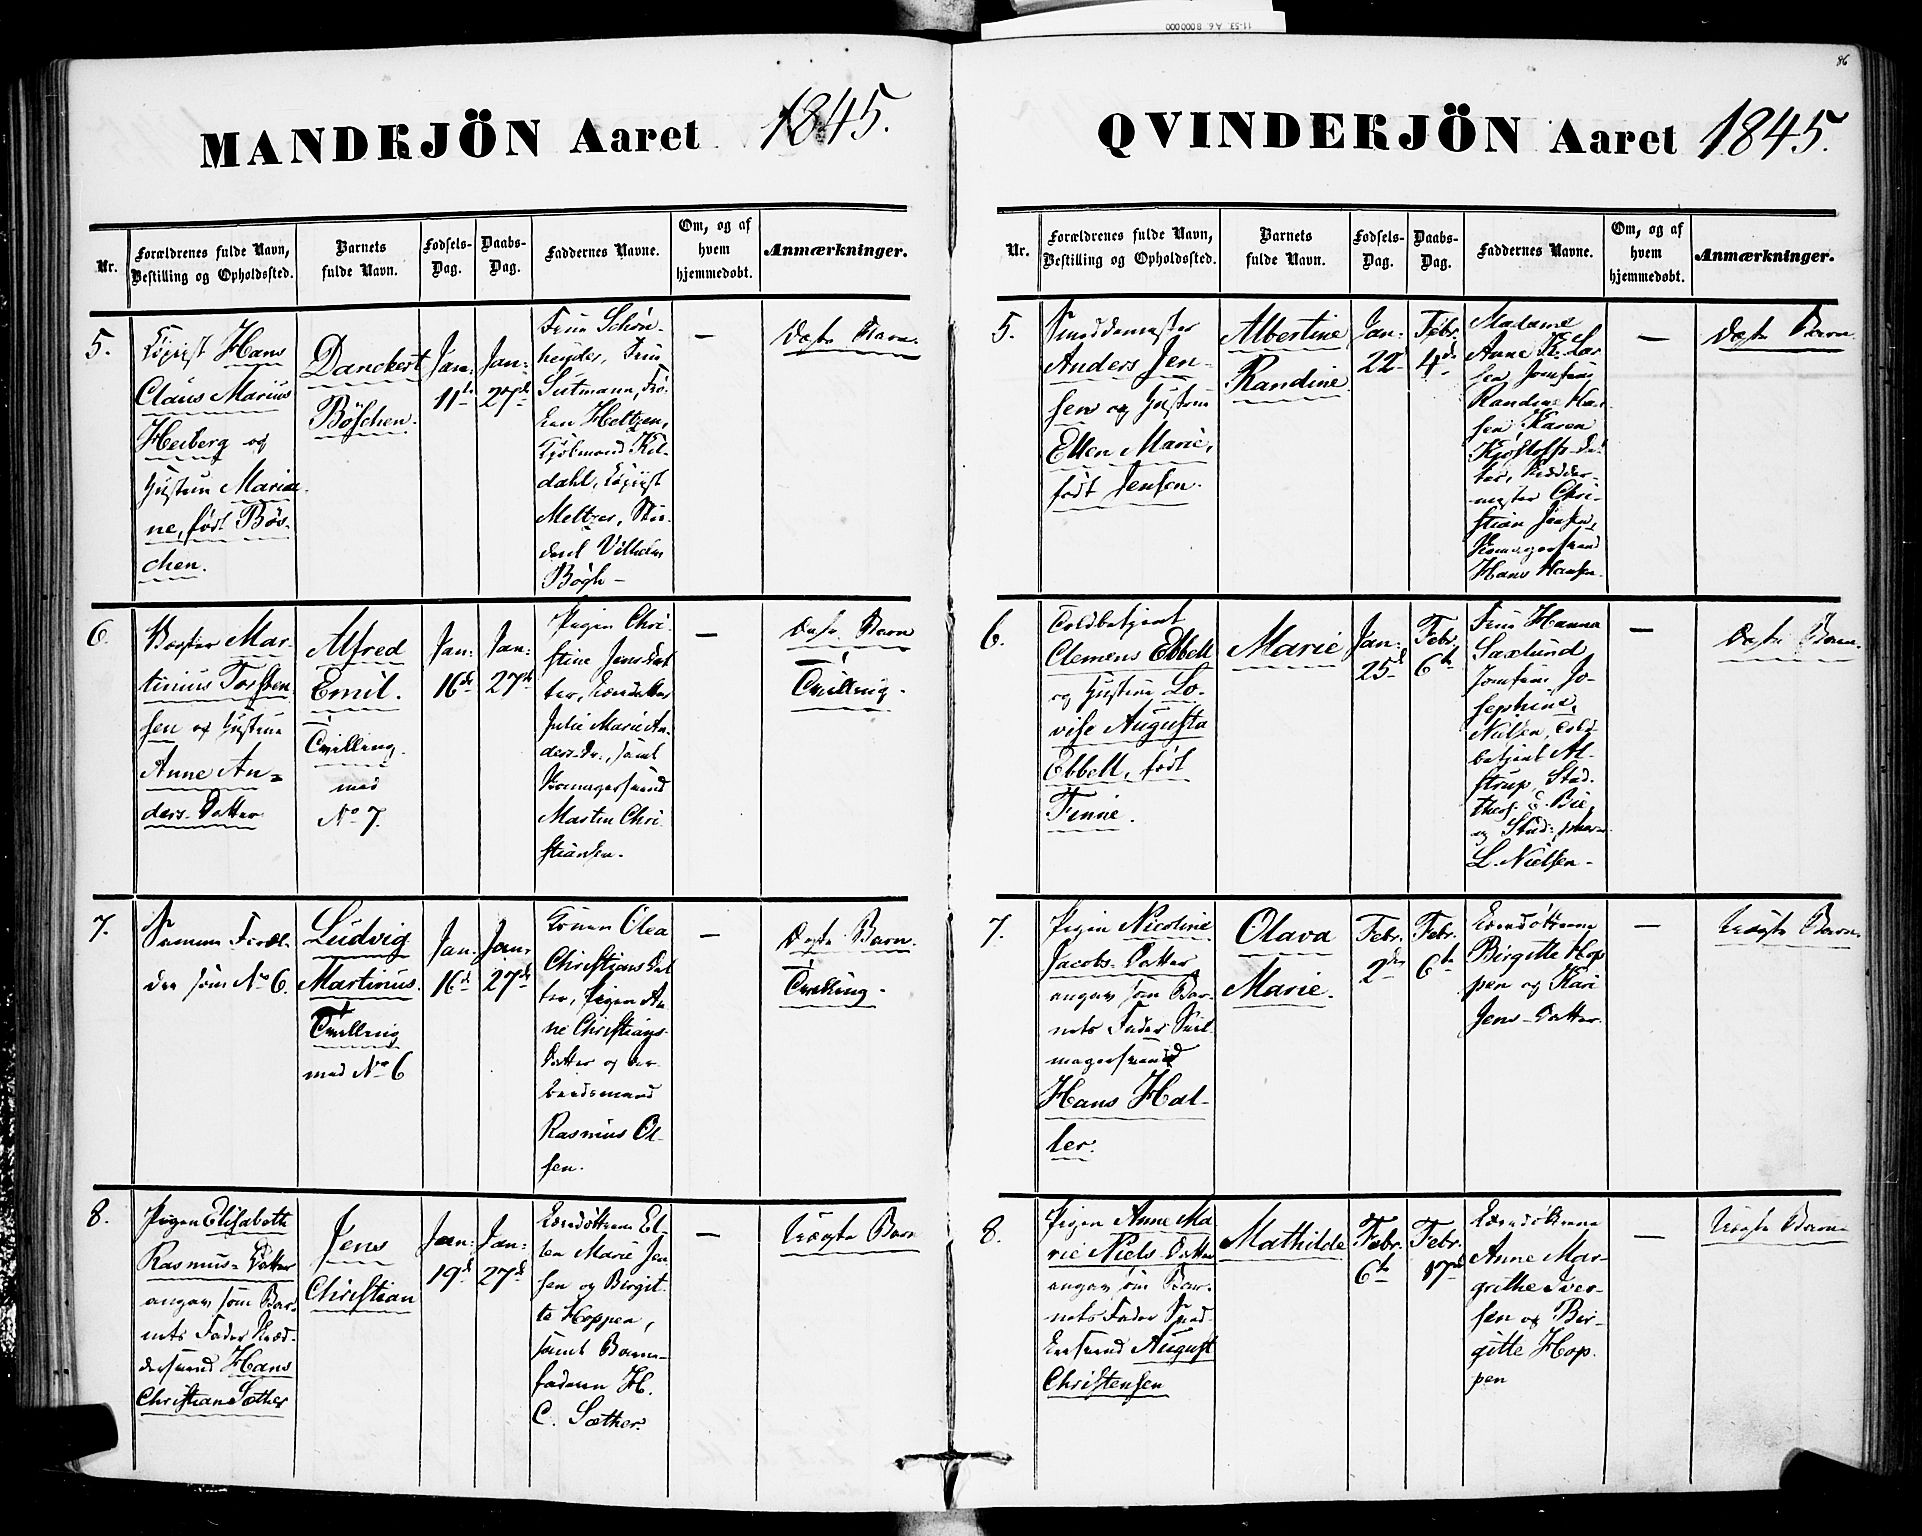 11-53. A6. 8000000
86
MANDKJÖN Aaret 1845.
Nr.
Forældrenes fulde Navn,
Bestilling og Opholdssted.
Barnets
fulde Navn.
Fødsels-
Dag.
Daabs-
Dag.
Faddernes Navne.
Om, og af
hvem
hjemmedøbt.
Anmærkninger.
5.
Hans
Claus Marius
Heiberg og
Hustru Maria
ne, født Bös-
chen.
Danckert
Böschen.
Jan:
11te
Jan:
27de
Frue Schön-
heyder, Frue
Sutmann, Frö-
ken Heltzen,
Kjöbmand Kil-
dahl,
Meltzer, Stu-
dent Vilhelm
Bögh -
—
Ægte Barn.
6.
Mar-
tinius Torsten-
sen og Hustrue
Anne An-
ders-Datter
Alfred
Emil.
Tvilling.
med
No 7.
Jan:
16de
Jan:
27de
Pigen Chri-
stine Jensdat
ter,
Julie Marie An-
ders-Dr., samt
Skomagersvend
Martin Chri-
stiansen.
—
Ægte Barn
Tvilling.
7.
Samme Foræl-
dre som No 6.
Ludvig
Martinus.
Tvilling
med No 6
Jan:
16de
Jan:
27de
Konen Olea
Christians Dat
ter, Pigen An-
ne Christians-
Datter og Ar-
beidsmand
Rasmus Ol-
sen.
—
Ægte Barn.
Tvilling.
8.
Pigen Elisabeth
Rasmus-Datter
angav som Bar-
nets Fader Skræd-
dersvend Hans
Christian Sæther
Jens
Christian
Jan:
19de
Jan:
27de
El-
len Marie Jen
sen og Birgit-
te Hoppen,
samt Barne-
faderen H.
C. Sæther.
—
Uægte Barn
QVINDEKJÖN Aaret 1845.
Nr.
Forældrenes fulde Navn,
Bestilling og Opholdssted.
Barnets
fulde Navn.
Fødsels-
Dag.
Daabs-
Dag.
Faddernes Navne.
Om, og af
hvem
hjemmedøbt.
Anmærkninger.
5.
Smeddemester
Anders Jen-
sen og Hustrue
Ellen Marie,
født Jensen.
Albertine
Randine.
Jan:
22
Febr.
4de
Madame
Anne K. Lar
sen Jomfrue
Randine Han
sen, Karen
Kjöstolfs-Dat
ter, Skrædder-
mester Chri-
stian Jensen,
Skomagersvend
Hans Hansen.
—
Ægte Barn.
6.
Toldbetjent
Clemens Ebbell
og Hustrue Lo-
vise Augusta
Ebbell, født
Finne.
Marie
Jan:
25de
Febr.
6te
Frue Hanna
Saxlund
Jomfrue Jo-
sephine,
Nielsen, Told-
betjent Al-
strup, Stud.
theol: C. Bie,
og Stud:
L. Nielsen -
—
Ægte Barn.
7.
Pigen Nicoline
Jacobs-Datter
angav som Bar-
nets Fader Seil-
magersvend
Hans Hal-
ler.
Olava
Marie.
Febr.
2den
Febr.
6te
Birgitte Hop
pen og Kari
Jens-Datter.
—
Uægte Barn.
8.
Pigen Anne Ma-
rie Niels-Datter
angav som Bar-
nets Fader
August
Christensen
Mathilde
Febr.
6te
Febr.
17de
Anne Mar-
grethe Iver-
sen og Bir-
gitte Hop-
pen
—
Uægte Barn